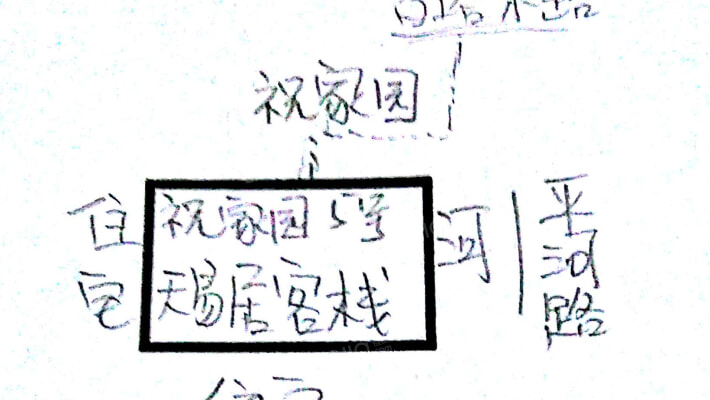 祝家园
住宅
祝家园5号
天易居客栈
河
平河路
住宅